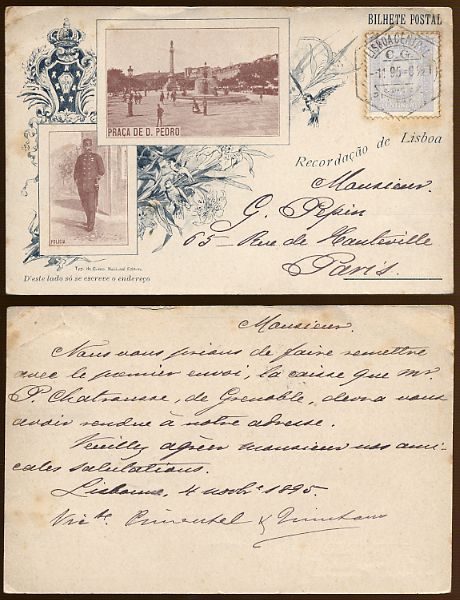 BILHETE POSTAL
LISBOA CENTRAL
PRAÇA DE D. PEDRO
Recordação de Lisboa
Monsieur
G. Pepin
65 - Rue de Hauteville
Paris.
POLICIA
Typ. da Comp. Nacional Editora
D'este lado só se escreve o endereço
Monsieur.
Nous vous prions de faire remettre
avec le premier envoi, la caisse que mr.
P. Chatrousse, de Grenoble, devra vous
avoir rendue à notre adresse.
Veuillez agréer monsieur nos ami-
cales salutations.
Lisbonne, 4 novbre 1895.
Pimentel &